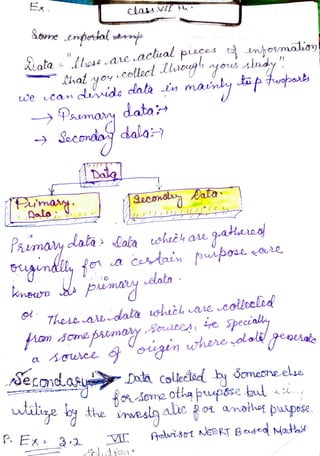 Ex.
class VII th.
Some important
Data - "these are actual pieces of information
that you collect through your study".
we can devide data in mainly two parts
→ Primary data :→
→ Seconday data :→
Data
Primary
Data.
Secondry Data.
Primary data > Data which are gathered
originally for a certain purpose are
known as primary data.
or These are data which are collected
from some primary Sources, i.e specially
a source of origin where data generate
Secondary Data collected by Someone else
for some other purpose but
utilize by the investigator for another purpose.
P. Ex. 3.2 VII Advisor NCERT Based Maths
Solution